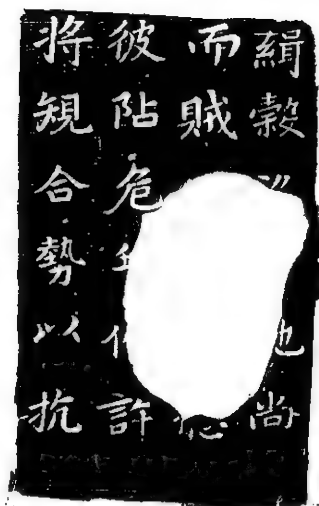 緝穀也尚
而賊
彼阽危許
將規合勢以抗